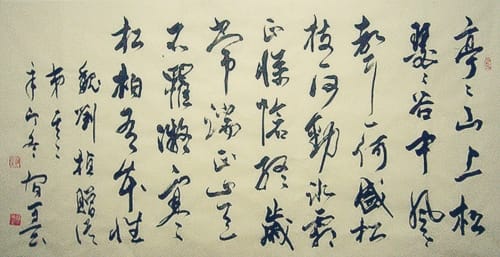 亭々山上松
瑟々谷中風々
聲一何盛松
枝一何勁冰霜
正慘愴終歲
常端正豈
不羅凝寒
松柏有本性
魏劉楨贈從
弟其二
辛卯冬